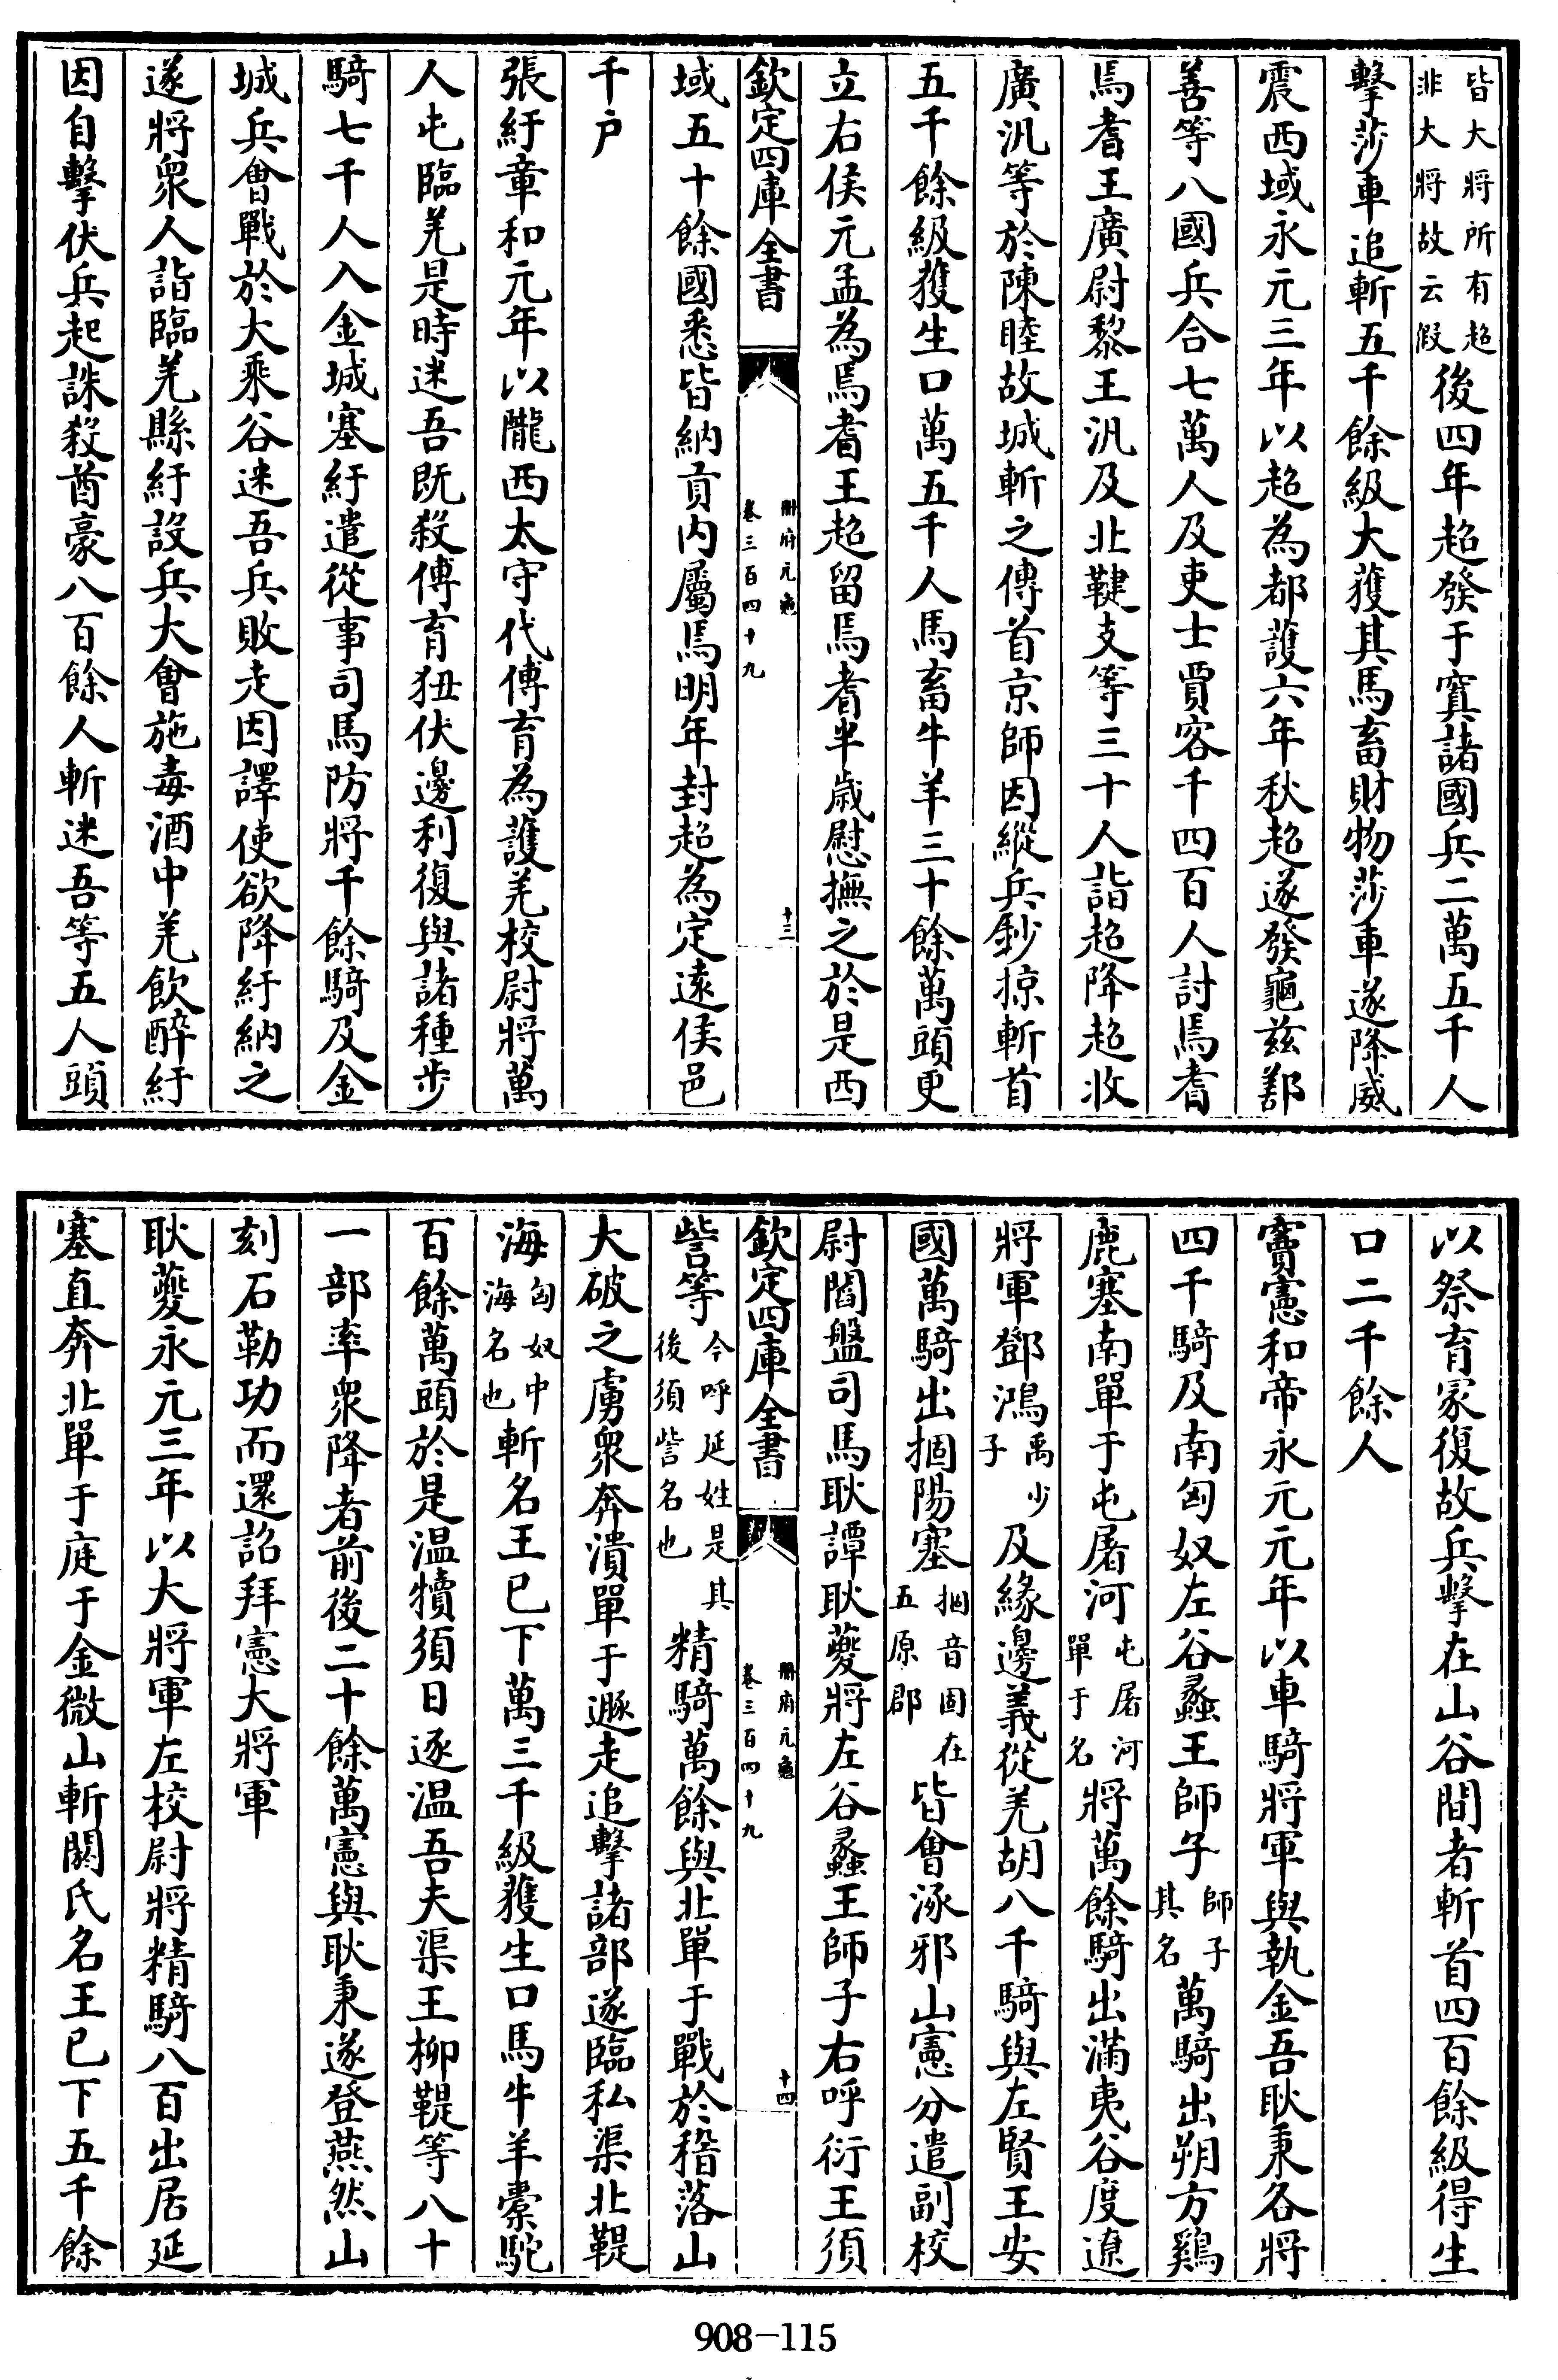 皆大將所有超非大將故云假後四年超發于窴諸國兵二萬五千人
擊莎車追斬五千餘級大獲其馬畜財物莎車遂降威
震西域永元三年以超為都護六年秋超遂發龜兹鄯
善等八國兵合七萬人及吏士賈客千四百人討焉耆
焉耆王廣尉黎王汎及北鞬支等三十人詣超降超收
廣汎等於陳睦故城斬之傳首京師因縱兵鈔掠斬首
五千餘級獲生口萬五千人馬畜牛羊三十餘萬頭更
立右侯元孟為焉耆王超留焉耆半歲慰撫之於是西
欽定四庫全書
冊府元龜
卷三百四十九
十三
域五十餘國悉皆納貢内屬焉明年封超為定遠侯邑
千户
張紆章和元年以隴西太守代傅育為護羌校尉將萬
人屯臨羌是時迷吾既殺傅育狃伏邊利復與諸種步
騎七千人入金城塞紆遣從事司馬防將千餘騎及金
城兵會戰於大乘谷迷吾兵敗走因譯使欲降紆納之
遂將衆人詣臨羌縣紆設兵大會施毒酒中羌飲醉紆
因自擊伏兵起誅殺酋豪八百餘人斬迷吾等五人頭
以祭育冢復故兵擊在山谷間者斬首四百餘級得生
口二千餘人
竇憲和帝永元元年以車騎將軍與執金吾耿秉各將
四千騎及南匈奴左谷蠡王師子師子其名萬騎出朔方鷄
鹿塞南單于屯屠河屯屠河單于名將萬餘騎出滿夷谷度遼
將軍鄧鴻禹少子及緣邊義從羌胡八千騎與左賢王安
國萬騎出㭲陽塞㭲音固在五原郡皆會涿邪山憲分遣副校
尉閻盤司馬耿譚耿夔將左谷蠡王師子右呼衍王須
欽定四庫全書
冊府元龜
卷三百四十九
十四
訾等今呼延姓是其後須訾名也精騎萬餘與北單于戰於稽落山
大破之虜衆奔潰單于遯走追擊諸部遂臨私渠北鞮
海匈奴中海名也斬名王已下萬三千級獲生口馬牛羊橐駝
百餘萬頭於是温犢須日逐温吾夫渠王柳鞮等八十
一部率衆降者前後二十餘萬憲與耿秉遂登燕然山
刻石勒功而還詔拜憲大將軍
耿夔永元三年以大將軍左校尉將精騎八百出居延
塞直奔北單于庭于金微山斬閼氏名王已下五千餘
908-115